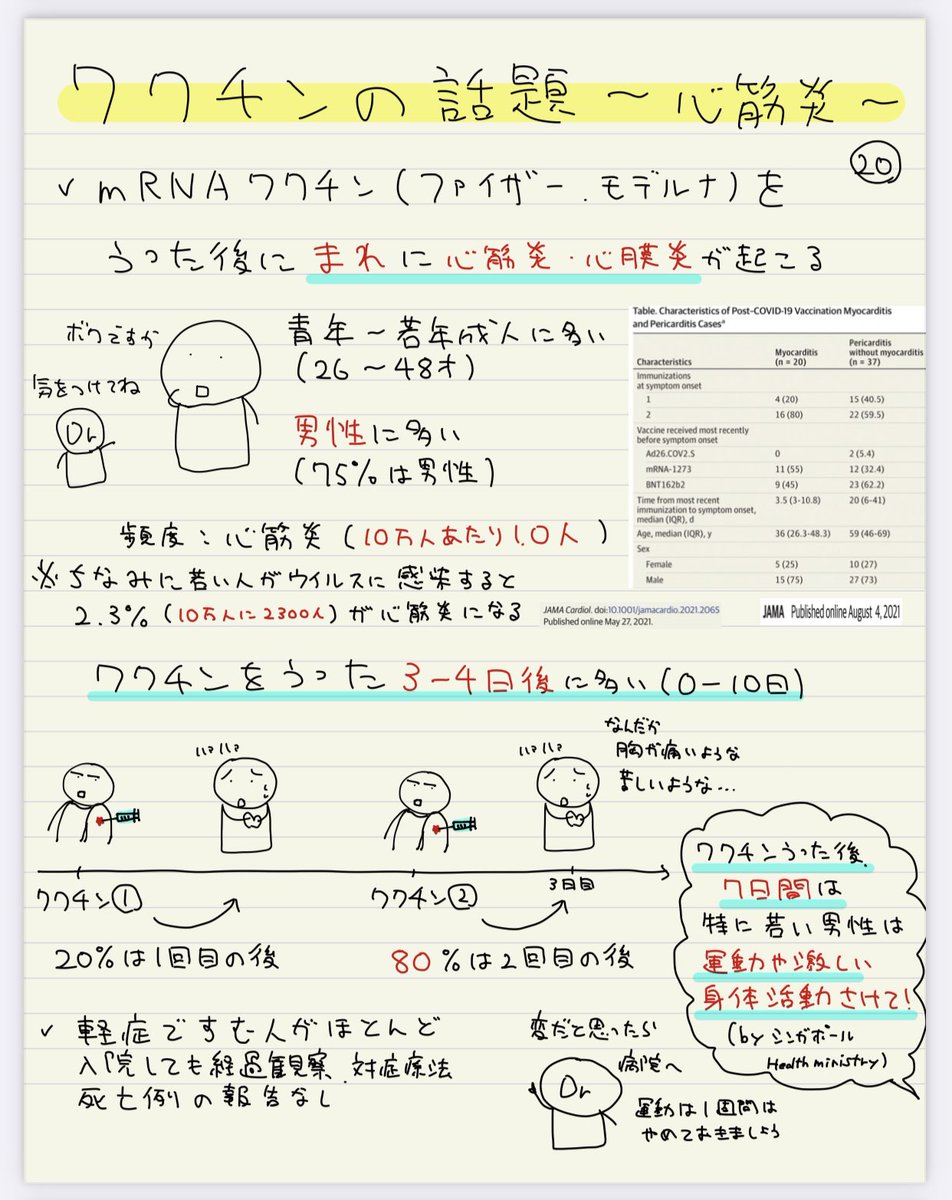 ワクチンの話題〜心筋炎〜
20
✓ mRNAワクチン(ファイザー.モデルナ)を
うった後に まれに 心筋炎・心膜炎が起こる
ボクですか
気をつけてね
Dr
青年〜若年成人に多い
(26〜48才)
男性に多い
(75%は男性)
Table. Characteristics of Post–COVID-19 Vaccination Myocarditis
and Pericarditis Casesᵃ
Characteristics Myocarditis (n = 20) Pericarditis without myocarditis (n = 37)
Immunizations at symptom onset
1 4 (20) 15 (40.5)
2 16 (80) 22 (59.5)
Vaccine received most recently before symptom onset
Ad26.COV2.S 0 2 (5.4)
mRNA-1273 11 (55) 12 (32.4)
BNT162b2 9 (45) 23 (62.2)
Time from most recent immunization to symptom onset, median (IQR), d 3.5 (3-10.8) 20 (6-41)
Age, median (IQR), y 36 (26.3-48.3) 59 (46-69)
Sex
Female 5 (25) 10 (27)
Male 15 (75) 27 (73)
頻度:心筋炎(10万人あたり1.0人)
※ちなみに若い人がウイルスに感染すると
2.3%(10万人に2300人)が心筋炎になる
JAMA Cardiol. doi:10.1001/jamacardio.2021.2065
Published online May 27, 2021.
JAMA Published online August 4, 2021
ワクチンをうった3-4日後に多い(0-10日)
ハァハァ
ハァハァ
なんだか
胸が痛いような
苦しいような...
ワクチン①
ワクチン②
3日目
20%は1回目の後
80%は2回目の後
ワクチンうった後、
7日間は
特に若い男性は
運動や激しい
身体活動さけて!
(by シンガポール
Health ministry)
✓ 軽症ですむ人がほとんど
入院しても経過観察.対症療法
死亡例の報告なし
変だと思ったら
病院へ
Dr
運動は1週間は
やめておきましょう